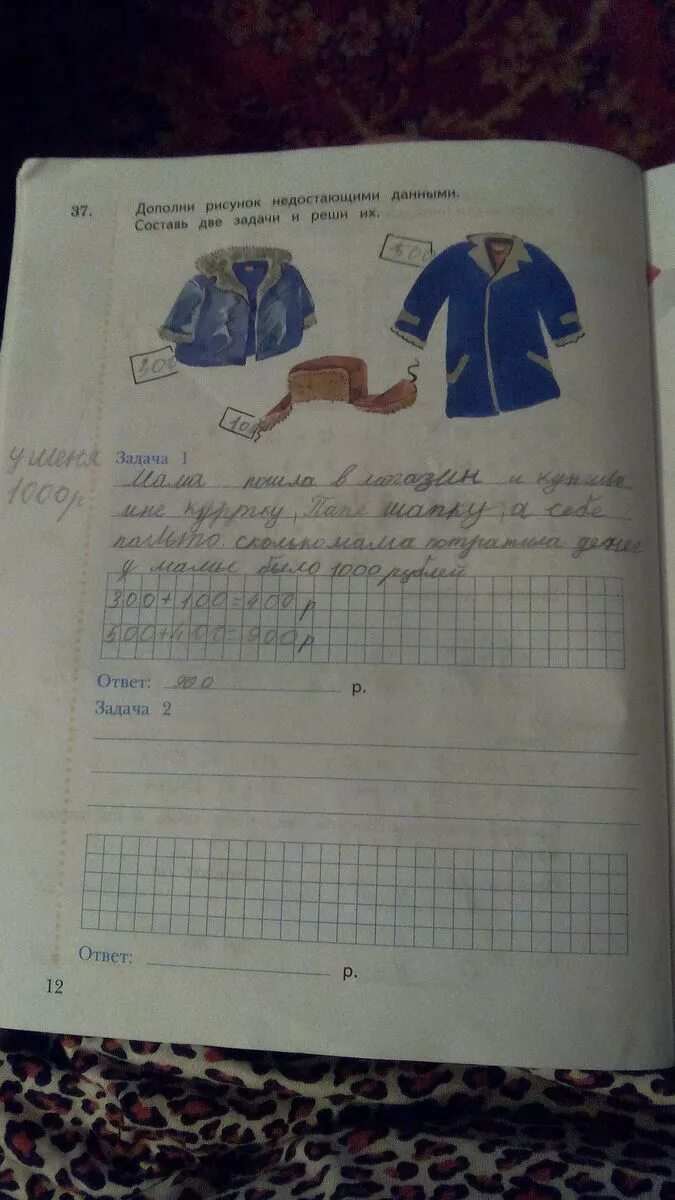 37. Дополни рисунок недостающими данными.
Составь две задачи и реши их.
500
300
100
у меня
1000р
Задача 1
Мама пошла в могазин и купила
мне куртку, Папе шапку, а себе
пальто. сколько мама потратила денег
у мамы было 1000 рублей
300+100=400 р
500+400=900 р
Ответ: 900 р.
Задача 2
Ответ: р.
12